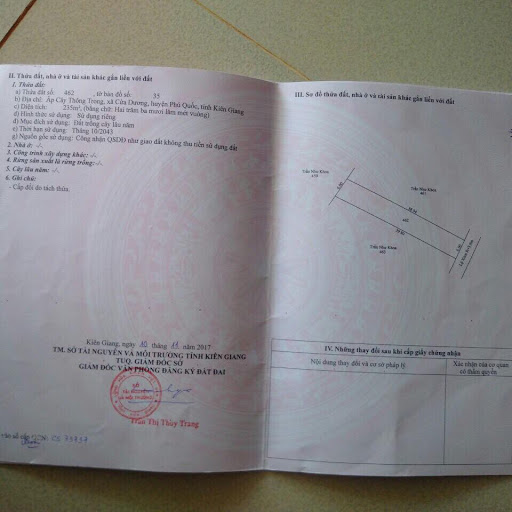 II. Thửa đất, nhà ở và tài sản khác gắn liền với đất
1. Thửa đất:
a) Thửa đất số: 462 , tờ bản đồ số: 35
b) Địa chỉ: Ấp Cây Thông Trong, xã Cửa Dương, huyện Phú Quốc, tỉnh Kiên Giang
c) Diện tích: 235m², (bằng chữ: Hai trăm ba mươi lăm mét vuông)
d) Hình thức sử dụng: Sử dụng riêng
đ) Mục đích sử dụng: Đất trồng cây lâu năm
e) Thời hạn sử dụng: Tháng 10/2043
g) Nguồn gốc sử dụng: Công nhận QSDĐ như giao đất không thu tiền sử dụng đất
2. Nhà ở: -/-
3. Công trình xây dựng khác: -/-
4. Rừng sản xuất là rừng trồng: -/-
5. Cây lâu năm: -/-
6. Ghi chú:
- Cấp đổi do tách thửa.
Kiên Giang, ngày 10 tháng 11 năm 2017
TM. SỞ TÀI NGUYÊN VÀ MÔI TRƯỜNG TỈNH KIÊN GIANG
TUQ. GIÁM ĐỐC SỞ
GIÁM ĐỐC VĂN PHÒNG ĐĂNG KÝ ĐẤT ĐAI
Trần Thị Thùy Trang
III. Sơ đồ thửa đất, nhà ở và tài sản khác gắn liền với đất
Trần Như Khoa
Trần Như Khoa
461
462
Trần Như Khoa
IV. Những thay đổi sau khi cấp giấy chứng nhận
Nội dung thay đổi và cơ sở pháp lý
Xác nhận của cơ quan
có thẩm quyền